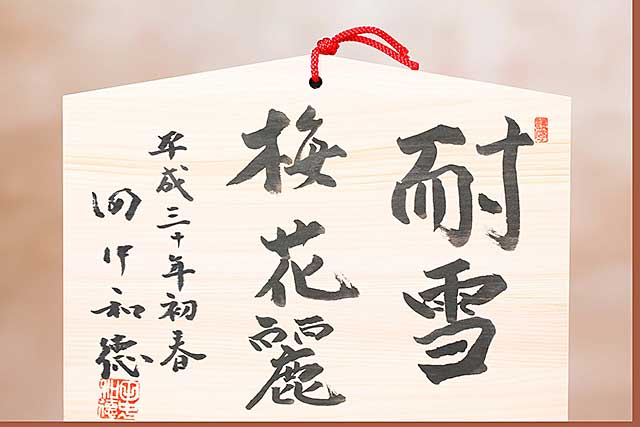 耐雪
梅花麗
平成三十年初春
田中和徳